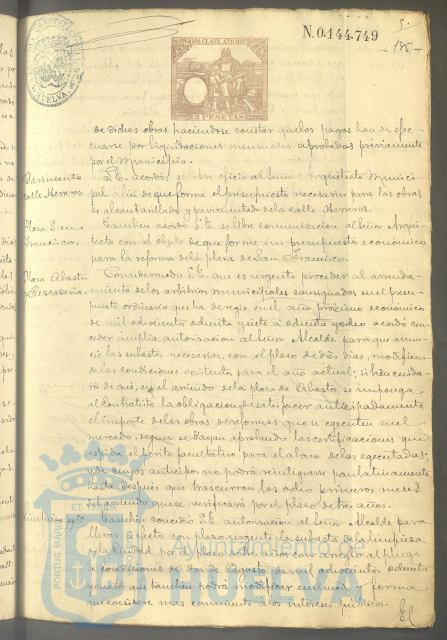 N.0.144.749
5.
185
10ª CLASE
2 PESETAS
HUELVA
de dichas obras haciendose constar que los pagos han de efec-
tuarse por liquidaciones mensuales aprobadas previamente
por el Municipio.
Pavimento
calle Herreros
S.E. Acordó se libre oficio al Señor Arquitecto Munici-
pal á fin de que forme el presupuesto necesario para las obras
de alcantarillado y pavimento de la calle Herreros.
Plaza San
Francisco.
Tambien acordó S.E. se libre comunicacion al Señor Arqui-
tecto con el objeto de que forme un presupuesto económico
para la reforma de la plaza de San Francisco.
Plaza Abasto
y Pescadería
Considerando S.E. que es urgente proceder al arrenda-
miento de los arbitrios municipales consignados en el presu-
puesto ordinario que ha de regir en el año próximo económico
de mil ochocientos ochenta y siete á ochenta y ocho acordó con-
ceder ámplia autorizacion al Señor Alcalde para que anun-
cie las subastas necesarias, con el plazo de diez dias, modifican-
do las condiciones vigentes para el año actual; si bien cuida-
rá de que, en el arriendo de la plaza de Abasto, se imponga
al contratista la obligacion de satisfacer anticipadamente
el importe de las obras de reformas que se egecuten en el
mercado, segun se vayan aprobando las certificaciones que
espida el perito facultativo para el abono de las egecutadas;
y de cuyos anticipos no podrá reintegrarse paulatinamente
hasta despues que trascurran los ocho primeros meses
del arriendo que se verificará por el plazo de tres años.
Tambien concedió S.E. autorizacion al Señor Alcalde para
llevar á efecto con plazo urgente la subasta de la limpieza
de la Ciudad por el plazo de años con arreglo al pliego
de condiciones de dos de Agosto de mil ochocientos ochenta
y cuatro que tambien podrá modificar en la forma
que considere mas conveniente á los intereses públicos.
El
Ayuntamiento de
HUELVA
PORTUS MARIS